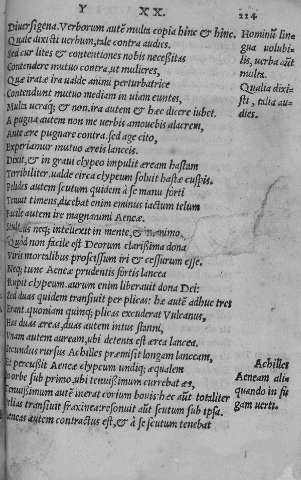 Y XX. 224
Diuersigena. Verborum autē multa copia hinc & hinc.
Quale dixisti uerbum, tale contra audies.
Sed cur lites & contentiones nobis necessitas
Contendere mutuo contra, ut mulieres,
Quæ iratæ ira ualde animi perturbatrice
Contendunt mutuo mediam in uiam euntes,
Multa ueraq; & non. ira autem & hæc dicere iubet.
A pugna autem non me uerbis amouebis alacrem,
Ante ære pugnare contra. sed age cito,
Experiamur mutuo æreis lanceis.
Dixit, & in graui clypeo impulit æream hastam
Terribiliter. ualde circa clypeum hastæ cuspis.
Pelides autem scutum quidem à se manu forti
Tenuit timens, ducebat enim eminus iactum telum
Facile autem ire magnanimi Aeneæ.
neq; intellexit in mente, & in animo,
Quod non facile est Deorum clarissima dona
Viris mortalibus proscissum iri & cessurum esse.
Neq; tunc Aeneæ prudentis fortis lancea
Rupit clypeum. aurum enim liberauit dona Dei:
Sed duas quidem transiuit per plicas: hæ autē adhuc tres
Erant. quoniam quinq; plicas excuderat Vulcanus,
Has duas æreas, duas autem intus stanni,
Vnam autem auream, ubi detenta est ærea lancea.
Secundus rursus Achilles præmisit longam lanceam,
Et percussit Aeneæ clypeum undiq; æqualem
In orbe sub primo, ubi tenuissimum currebat æs,
Tenuissimum autē inerat corium bouis: hæc autē totaliter
Pelias transiuit fraxinea: resonuit aūt scutum sub ipsa.
Aeneas autem contractus est, & à se scutum tenebat
Hominū lin
gua uolubi
lis, uerba aūt
multa.
Qualia dixi
sti, talia au-
dies.
Achilles
Aeneam ali
quando in fu
gam uertit.